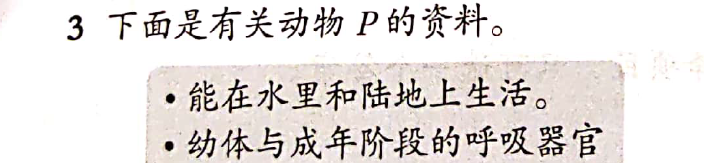 3 下面是有关动物 P 的资料。
• 能在水里和陆地上生活。
• 幼体与成年阶段的呼吸器官